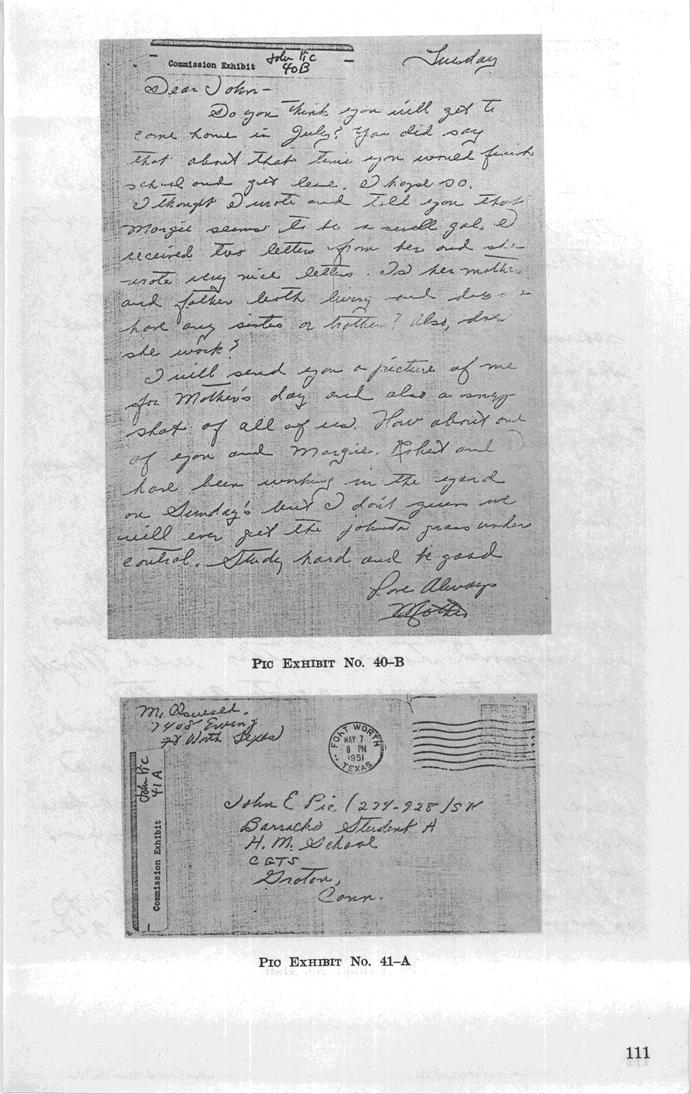 Commission Exhibit
John Pic
40B
Tuesday
Dear John-
Do you think you will get to
come home in July? You did say
that about that time you would finish
school and get leave. I hope so.
I thought I wrote and told you that
Margie seems to be a swell gal. I
received two letters from her and she
wrote very nice letters. Is her mother
and father both living and does
have any sister or brother? Also, does
she work?
I will send you a picture of me
for Mother's day and also a snap
shot of all of us. How about one
of you and Margie. Robert and I
have been working in the yard
on Sunday's but I don't guess we
will ever get the johnson grass under
control. Study hard and be good
Love Always
Mother
PIC EXHIBIT No. 40–B
M. Oswald.
7408 Ewing
Ft Worth Texas
FORT WORTH
MAY 7
8 PM
1951
TEXAS
John Pic
41A
Commission Exhibit
John E Pic (274-928) SN
Barracks Student A
H. M. School
CGTS
Groton,
Conn.
PIC EXHIBIT No. 41–A
111